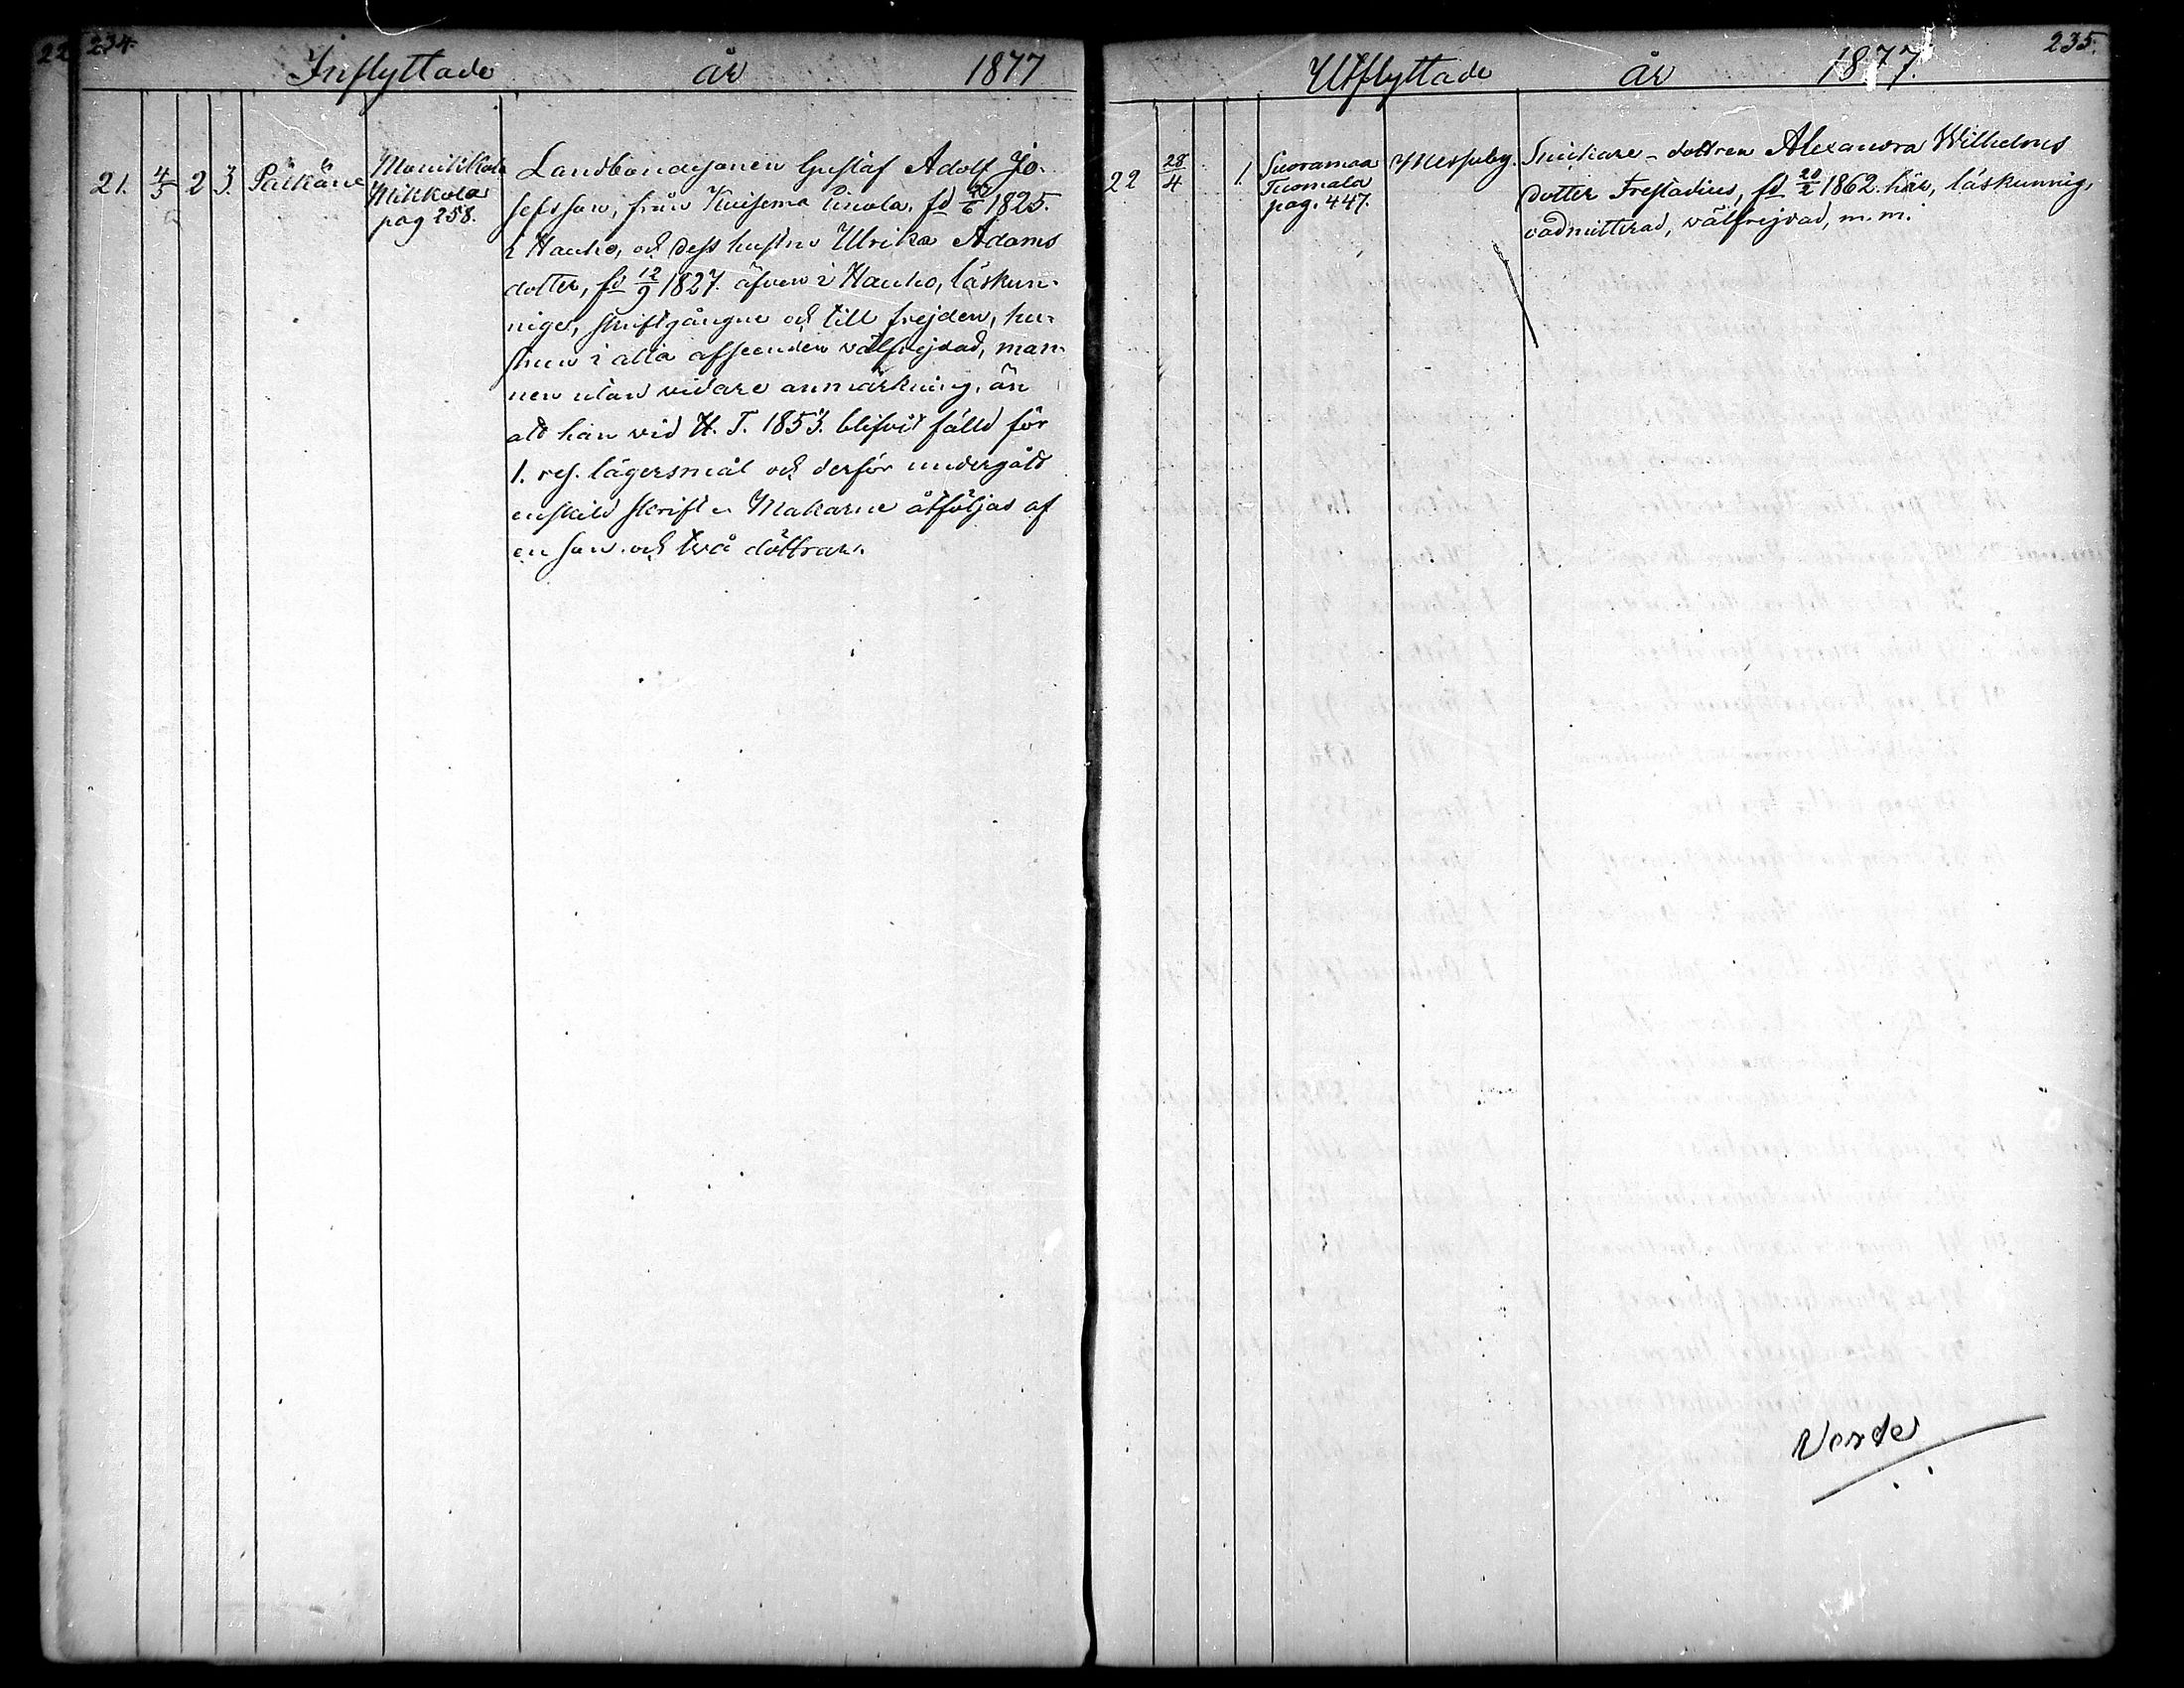 22 234.
Inflyttade år 1877
21. 4/5 2 3. Pälkäne
Mikkola
pag 258.
Landbondesonen Gustaf Adolf Jo-
sefsson, från Kuisema, fd /6 1825.
i Hauho, och dess hustru Ulrika Adams
dotter, fd 12/9 1827. äfven i Hauho, läskun-
nige, skriftgångne och till frejden, hu-
strun i alla afseenden välfrejdad, man-
nen utan vidare anmärkning, än
att han vid H. T. 1853. blifvit fälld för
1. res. lägersmål och derför undergått
enskild skrift. Makarne åtföljas af
en son och två döttrar.
235.
Utflyttade år 1877.
22 28/4 1.
Suoramaa
Tuomala
pag. 447.
Snickare-dottren Alexandra Wilhelms
dotter Frestadius, fd 20/2 1862. här, läskunnig,
oadmitterad, välfrejdad, m. m.
Verte